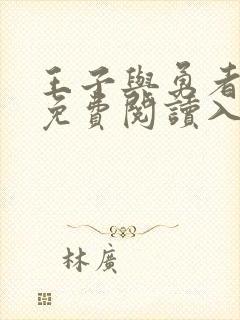 王子與勇者
免費閱讀入
林廣